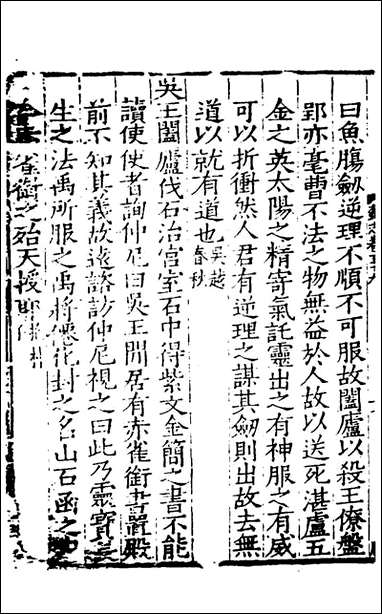 曰魚膓劔逆理不順不可服故闔廬以殺王僚盤
郢亦亳曹不法之物無益於人故以送死湛盧五
金之英太陽之精寄氣託靈出之有神服之有威
可以折衝然人君有逆理之謀其劔則出故去無
道以就有道也吳越春秋
吳王闔廬伐石治宫室石中得紫文金簡之書不能
讀使使者詢仲尼曰吳王閒居有赤雀銜書置殿
前不知其義故遠諮訪仲尼視之曰此乃靈寳長
生之法禹所服之禹將僊化封之名山石函之中
雀銜之殆天授